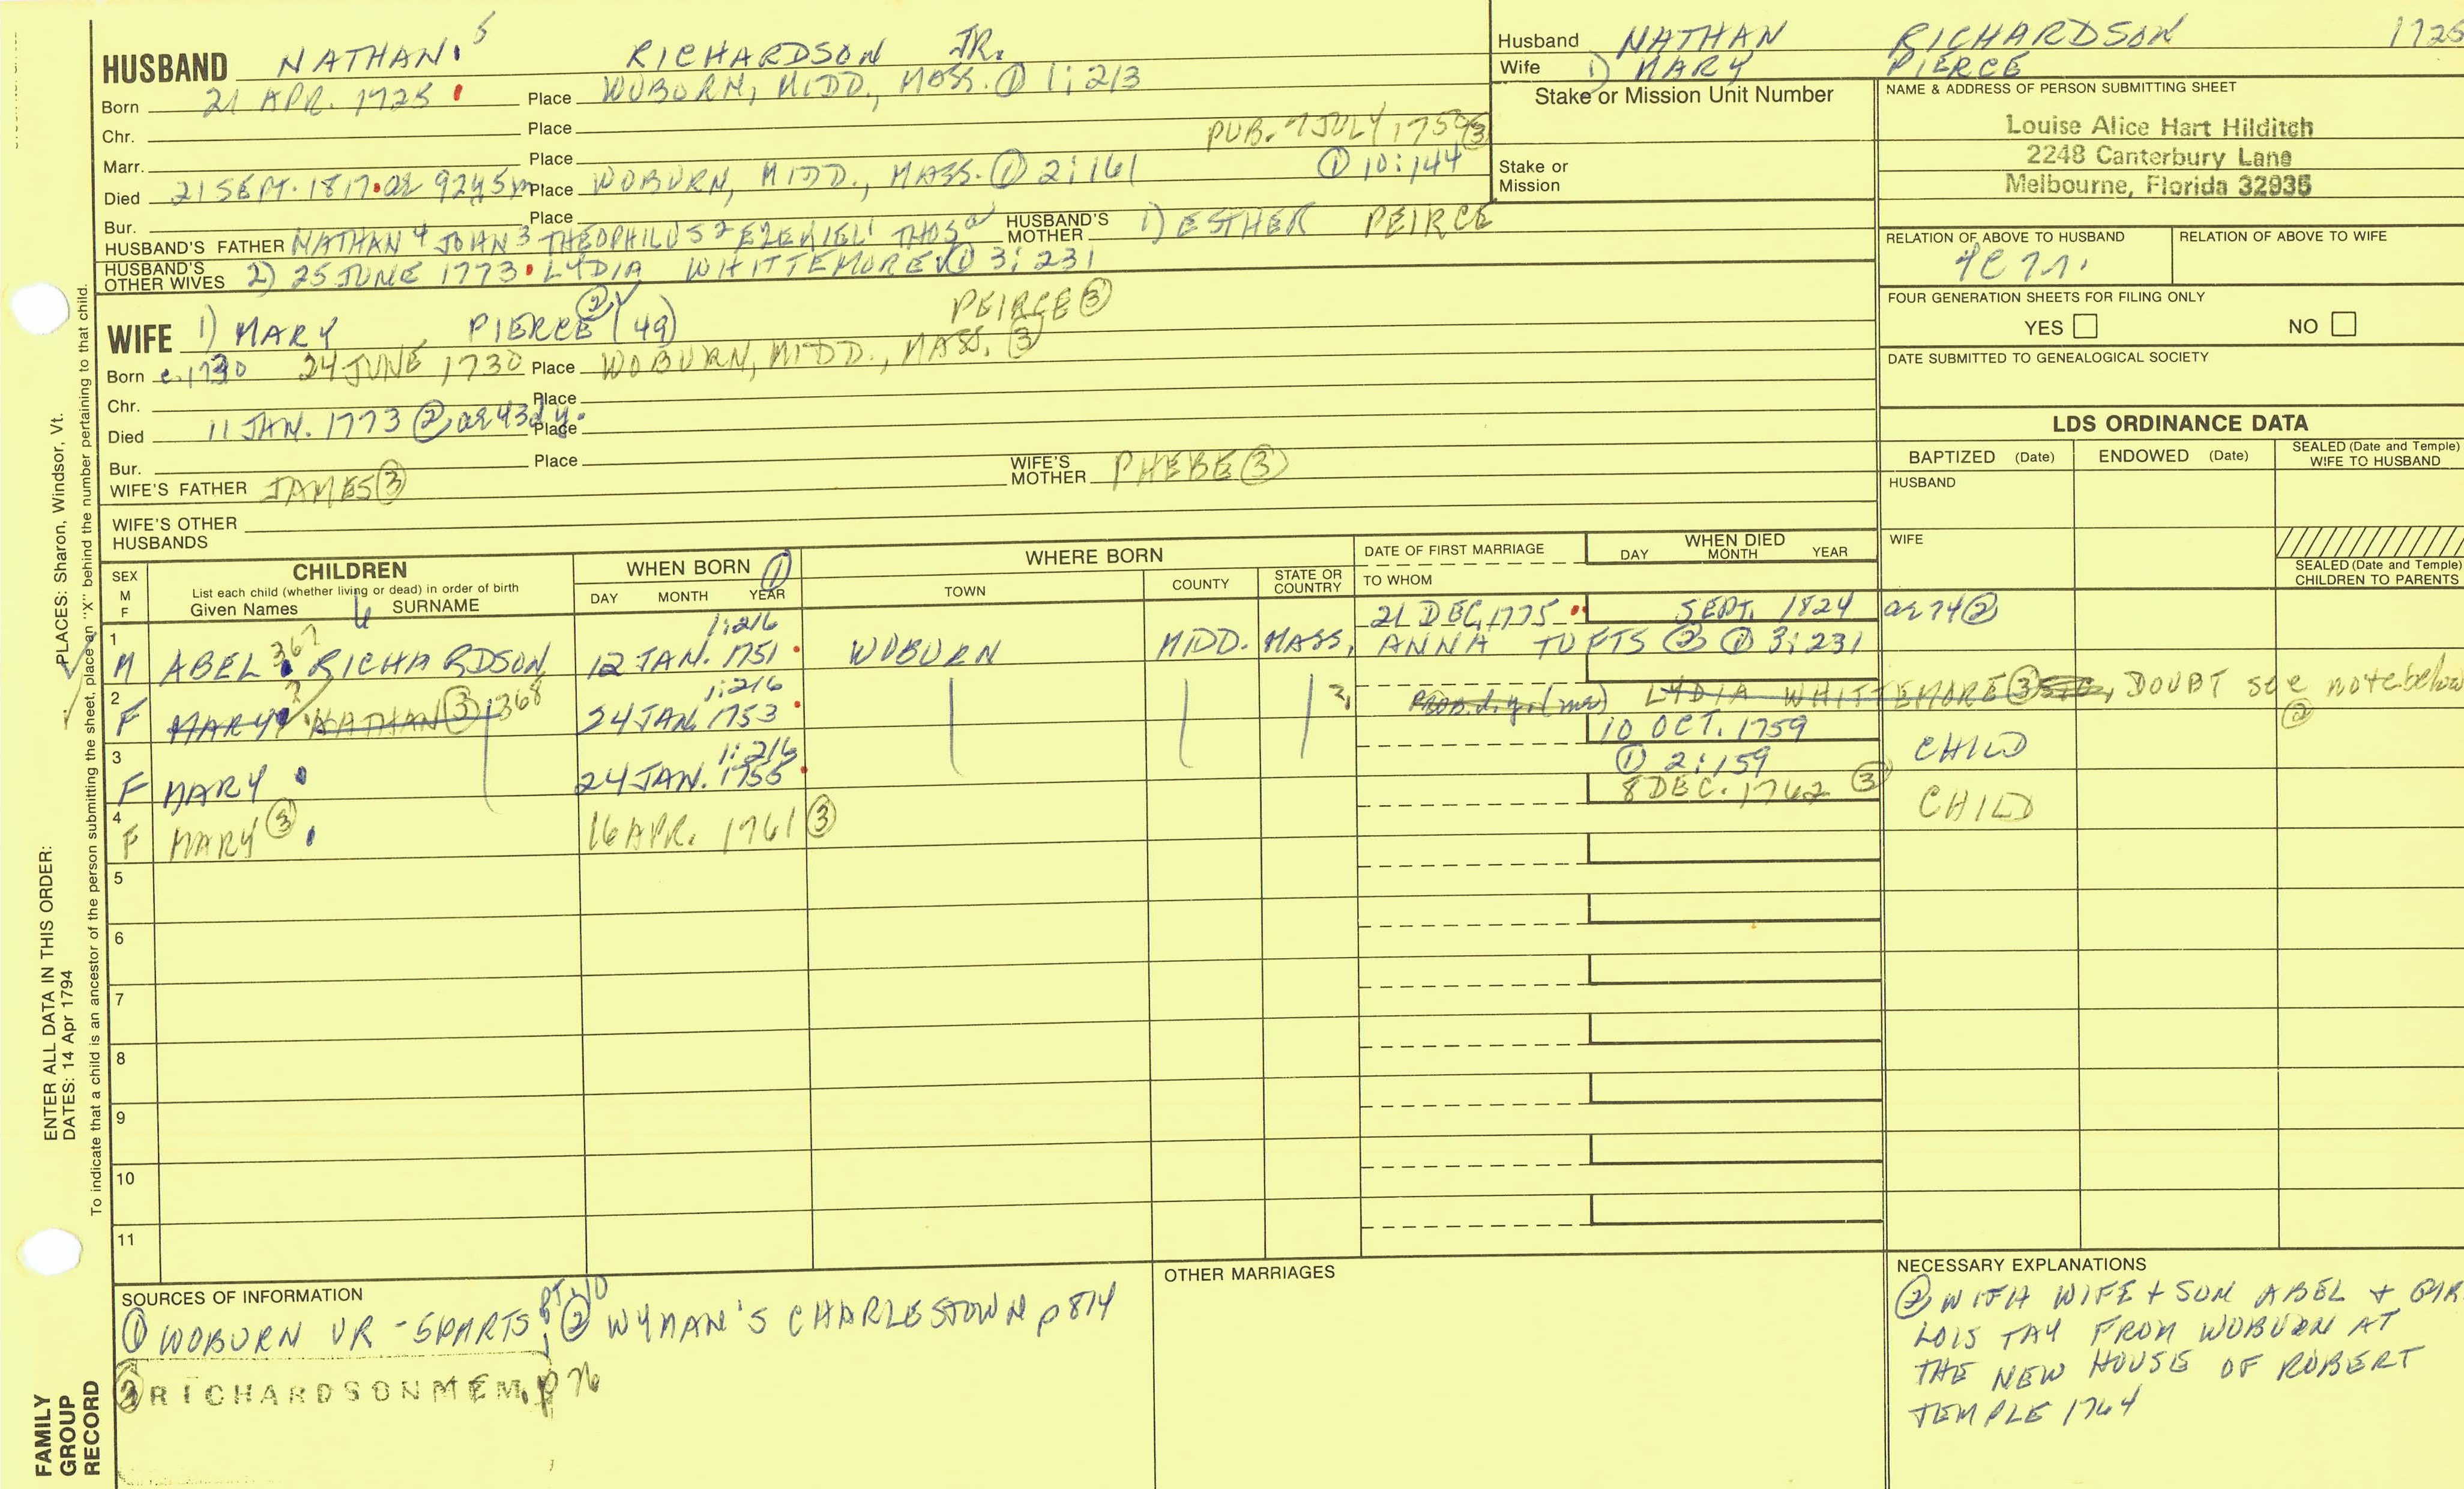 HUSBAND NATHAN. 5 RICHARDSON JR.
Born 21 APR. 1725 Place WOBURN, MIDD., MASS. ① 1:213
Chr. Place
PUB. 7 JULY 1750 ③
Marr. Place ① 10:144
Died 21 SEPT. 1817 ae 92y5m Place WOBURN, MIDD., MASS. ① 2:161
Bur. Place
HUSBAND'S FATHER NATHAN 4 JOHN 3 THEOPHILUS 2 EZEKIEL 1 THOS a HUSBAND'S MOTHER 1) ESTHER PEIRCE
HUSBAND'S OTHER WIVES 2) 25 JUNE 1773 LYDIA WHITTEMORE ① 3:231
WIFE 1) MARY PIERCE ② (49) PEIRCE ③
Born c. 1730 24 JUNE 1730 Place WOBURN, MIDD., MASS. ③
Chr. Place
Died 11 JAN. 1773 ② ae 43d y. Place
Bur. Place
WIFE'S FATHER JAMES ③ WIFE'S MOTHER PHEBE ③
WIFE'S OTHER HUSBANDS
Husband NATHAN RICHARDSON 1725
Wife 1) MARY PIERCE
Stake or Mission Unit Number
Stake or Mission
NAME & ADDRESS OF PERSON SUBMITTING SHEET
Louise Alice Hart Hilditch
2248 Canterbury Lane
Melbourne, Florida 32935
RELATION OF ABOVE TO HUSBAND RELATION OF ABOVE TO WIFE
FOUR GENERATION SHEETS FOR FILING ONLY
YES NO
DATE SUBMITTED TO GENEALOGICAL SOCIETY
LDS ORDINANCE DATA
BAPTIZED (Date) ENDOWED (Date) SEALED (Date and Temple) WIFE TO HUSBAND
HUSBAND
WIFE
SEALED (Date and Temple) CHILDREN TO PARENTS
SEX M F
CHILDREN
List each child (whether living or dead) in order of birth
Given Names 6 SURNAME
WHEN BORN ①
DAY MONTH YEAR
WHERE BORN
TOWN COUNTY STATE OR COUNTRY
DATE OF FIRST MARRIAGE
TO WHOM
WHEN DIED
DAY MONTH YEAR
1:216 21 DEC. 1775 SEPT. 1824 ae 74 ②
1 M ABEL 367 RICHARDSON 12 JAN. 1751 WOBURN MIDD. MASS. ANNA TUFTS ② ① 3:231
1:216 LYDIA WHITTEMORE ③ DOUBT see note below
2 F MARY? NATHAN ③ 368 24 JAN. 1753
1:216 10 OCT. 1759 CHILD
3 F MARY 24 JAN. 1755 ① 2:159
8 DEC. 1762 ③ CHILD
4 F MARY ③ 16 APR. 1761 ③
5
6
7
8
9
10
11
SOURCES OF INFORMATION
① WOBURN VR - 5PARTS, PT. 10 ② WYMAN'S CHARLESTOWN p 814
③ RICHARDSON MEM. p 76
OTHER MARRIAGES
NECESSARY EXPLANATIONS
② WITH WIFE + SON ABEL +
LOIS TAY FROM WOBURN AT
THE NEW HOUSE OF ROBERT
TEMPLE 1764
PLACES: Sharon, Windsor, Vt.
ENTER ALL DATA IN THIS ORDER:
DATES: 14 Apr 1794
To indicate that a child is an ancestor of the person submitting the sheet, place an "X" behind the number pertaining to that child.
FAMILY GROUP RECORD